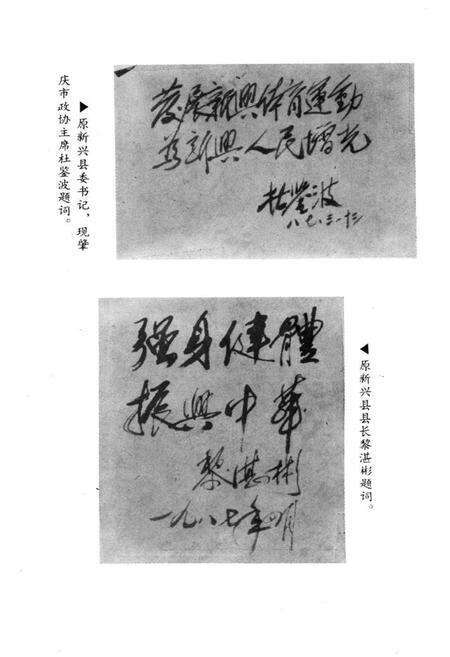 ▶原新兴县委书记,现肇
庆市政协主席杜鉴波题词。
發展新興体育運動
為新興人民增光
杜鉴波
八七.三.十三
强身健體
振興中華
黎湛彬
一九八七年四月
◀原新兴县县长黎湛彬题词。